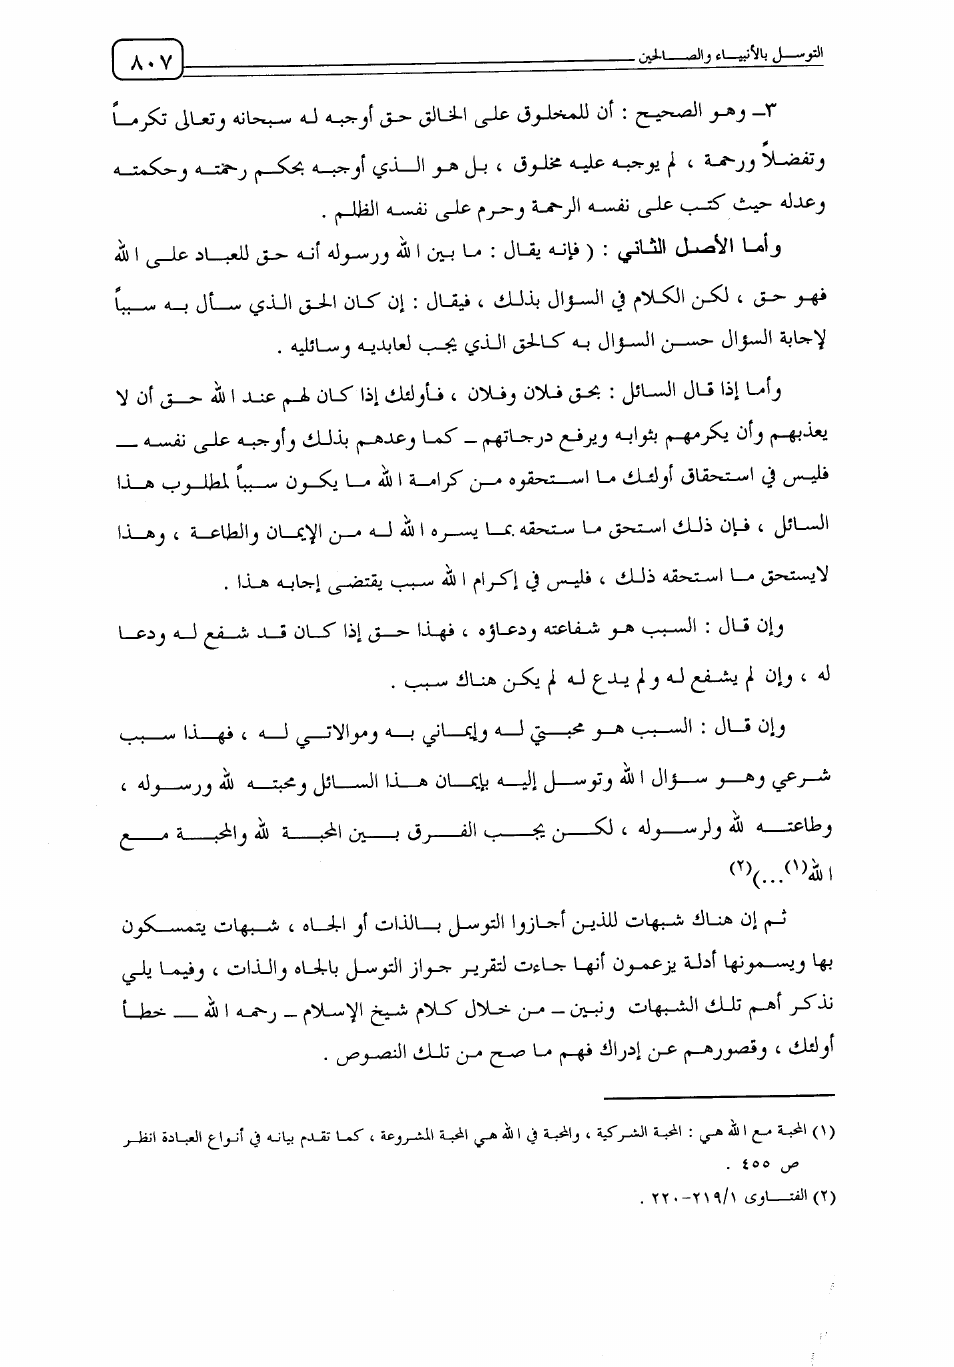 التوسل بالأنبياء والصالحين
٨٠٧
٣ـ وهو الصحيح : أن للمخلوق على الخالق حق أوجبه له سبحانه وتعالى تكرماً
وتفضلاً ورحمة ، لم يوجبه عليه مخلوق ، بل هو الذي أوجبه بحكم رحمته وحكمته
وعدله حيث كتب على نفسه الرحمة وحرم على نفسه الظلم .
وأما الأصل الثاني : ( فإنه يقال : ما بين الله ورسوله أنه حق للعباد على الله
فهو حق ، لكن الكلام في السؤال بذلك ، فيقال : إن كان الحق الذي سأل به سبباً
لإجابة السؤال حسن السؤال به كالحق الذي يجب لعابديه وسائليه .
وأما إذا قال السائل : بحق فلان وفلان ، فأولئك إذا كان لهم عند الله حق أن لا
يعذبهم وأن يكرمهم بثوابه ويرفع درجاتهم ــ كما وعدهم بذلك وأوجبه على نفسه ــ
فليس في استحقاق أولئك ما استحقوه من كرامة الله ما يكون سبباً لمطلوب هذا
السائل ، فإن ذلك استحق ما ستحقه بما يسره الله له من الإيمان والطاعة ، وهذا
لايستحق ما استحقه ذلك ، فليس في إكرام الله سبب يقتضى إجابه هذا .
وإن قال : السبب هو شفاعته ودعاؤه ، فهذا حق إذا كان قد شفع له ودعا
له ، وإن لم يشفع له ولم يدع له لم يكن هناك سبب .
وإن قال : السبب هو محبتي له وإيماني به وموالاتي له ، فهذا سبب
شرعي وهو سؤال الله وتوسل إليه بإيمان هذا السائل ومحبته لله ورسوله ،
وطاعته لله ولرسوله ، لكن يجب الفرق بين المحبة لله والمحبة مع
الله(١)...)(٢)
ثم إن هناك شبهات للذين أجازوا التوسل بالذات أو الجاه ، شبهات يتمسكون
بها ويسمونها أدلة يزعمون أنها جاءت لتقرير جواز التوسل بالجاه والذات ، وفيما يلي
نذكر أهم تلك الشبهات ونبين ــ من خلال كلام شيخ الإسلام ــ رحمه الله ــ خطأ
أولئك ، وقصورهم عن إدراك فهم ما صح من تلك النصوص .
(١) المحبة مع الله هي : المحبة الشركية ، والمحبة في الله هي المحبة المشروعة ، كما تقدم بيانه في أنواع العبادة انظر
ص ٤٥٥ .
(٢) الفتاوى ٢١٩/١-٢٢٠ .